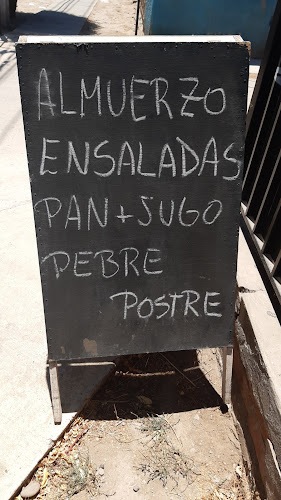 ALMUERZO
ENSALADAS
PAN + JUGO
PEBRE
POSTRE